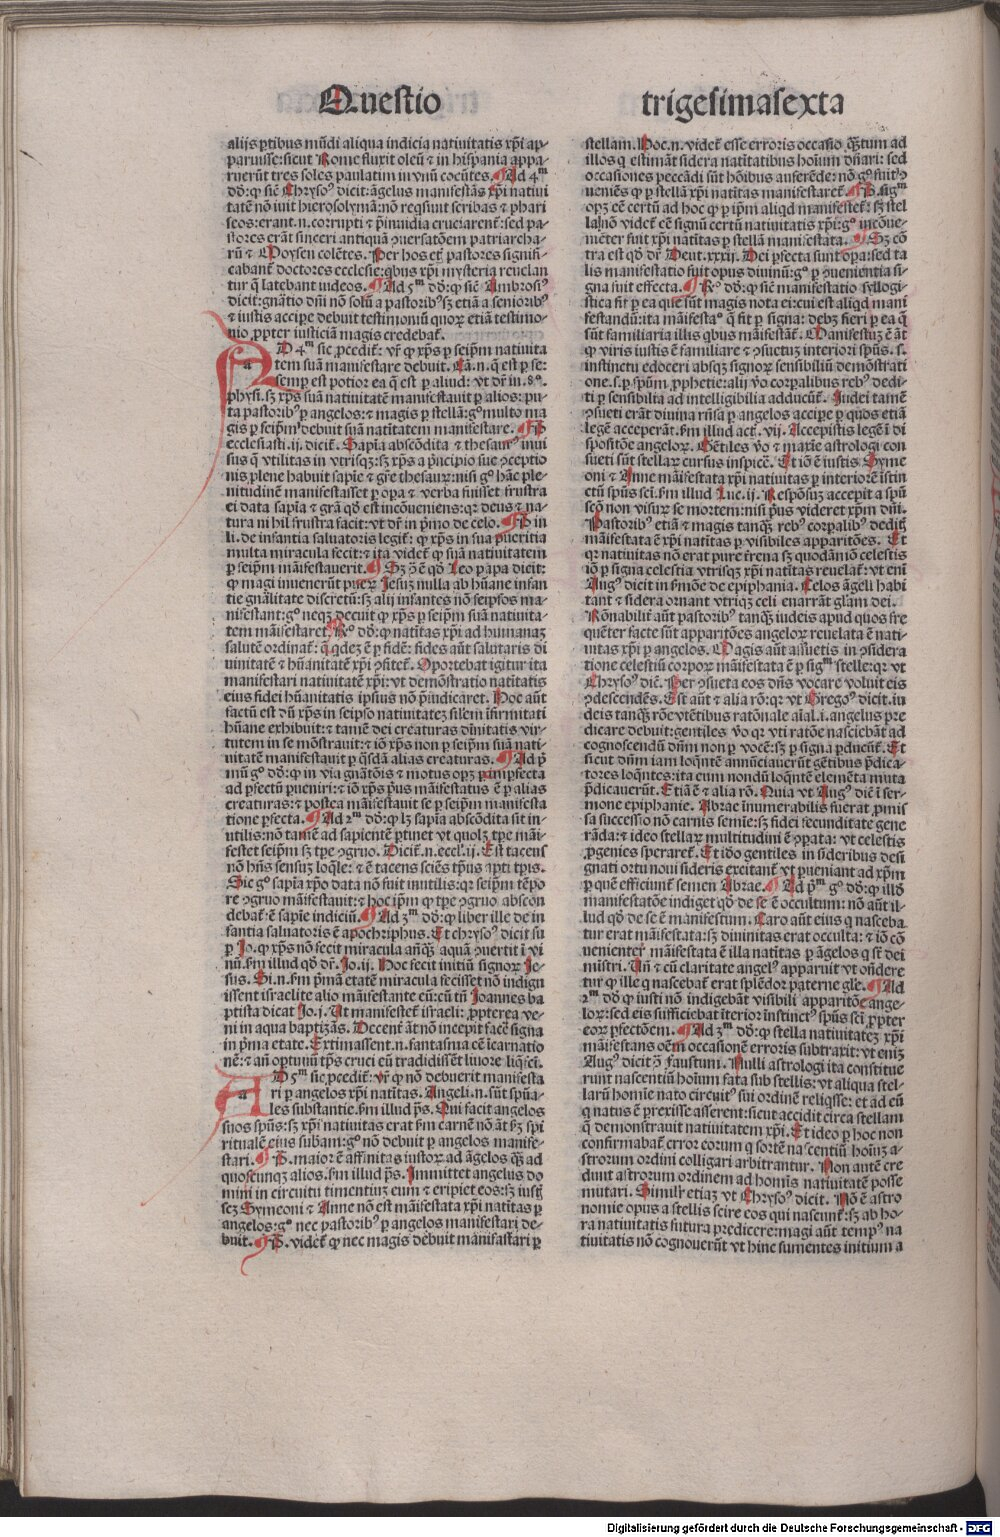 Questio
trigesimasexta
alijs ꝑtibus mūdi aliqua indicia natiuitatis xp̄i ap-
paruisse: sicut Rome fluxit oleū ⁊ in hispania appa-
ruerūt tres soles paulatim in vnū coeūtes. Ad 4ᵐ
dō: ꝙ sic̄ Chrysoꝰ dicit: āgelus manifestās xp̄i natiui
tatē nō iuit hierosolymā: nō reqsiuit scribas ⁊ phari
seos: erant .n. corrupti ⁊ p̄ inuidia cruciarent᷑: sed pa-
stores erāt sinceri antiquā ꝯuersatōem patriarcha-
rū ⁊ Moysen colētes. Per hos et᷑ pastores signifi-
cabant᷑ doctores ecclesie: qbus xp̄i mysteria reuelan
tur q̄ latebant iudeos. Ad 5ᵐ dō: ꝙ sic̄ Ambrosiꝰ
dicit: gn̄atio dn̄i nō solū a pastoribꝰ sꝫ etiā a senioribꝰ
⁊ iustis accipe debuit testimoniū quoꝝ etiā testimo-
nio ꝓpter iusticiā magis credebat᷑.
AD 4ᵐ sic ꝓcedit᷑: vr̄ ꝙ xp̄s ꝑ seip̄m natiuita
tem suā manifestare debuit. Cā .n. q̄ est ꝑ se:
semp est potior ea q̄ est ꝑ aliud: vt dr̄ in .8ᵒ.
physi. sꝫ xp̄s suā natiuitatē manifestauit ꝑ alios: pu-
ta pastoribꝰ ꝑ angelos: ⁊ magis ꝑ stellā: gᵒ multo ma
gis ꝑ seip̄mꝰ debuit suā natiuitatem manifestare. P̄
ecclesiasti. ij. dicit᷑. Sapīa abscōdita ⁊ thesaurꝰ inui
sus q̄ vtilitas in vtrisqꝫ: sꝫ xp̄s a p̄ncipio sue ꝯceptio
nis plene habuit sapīe ⁊ gr̄e thesaurꝫ: nisi gᵒ hāc ple-
nitudinē manifestaſſet ꝑ opa ⁊ verba fuisset frustra
ei data sapīa ⁊ grā qō est incōueniens: qꝛ deus ⁊ na-
tura nihil frustra facit: vt dr̄ in p̄mo de celo. P̄ in
li. de infantia saluatoris legit᷑: ꝙ xp̄s in sua pueritia
multa miracula fecit: ⁊ ita videt᷑ ꝙ suā natiuitatem
ꝑ seip̄m māifestauerit. Sꝫ ꝯ̄ ē qō Leo papa dicit:
ꝙ magi inuenerūt puerꝫ Jesuꝫ nulla ab hūane infan
tie gn̄alitate discretū: sꝫ alij infantes nō seipsos ma-
nifestant: gᵒ neqꝫ decuit ꝙ xp̄s ꝑ seip̄m suā natiuita-
tem māifestaret. Rᵒ dō: ꝙ natītas xp̄i ad humanaꝫ
salutē ordinat᷑: q̄ qdeꝫ ē ꝑ fidē: fides aūt salutaris di
uinitatē ⁊ hūanitatē xp̄i ꝯfitet᷑. Oportebat igitur ita
manifestari natiuitatē xp̄i: vt demōstratio natītatis
eius fidei hūanitatis ipsius nō p̄iudicaret. Hoc aūt
factū est dū xp̄s in seipso natiuitateꝫ sil̄em īfirmitati
hūane exhibuit: ⁊ tamē dei creaturas dīnitatis vir-
tutem in se mōstrauit: ⁊ iō xp̄s non ꝑ seip̄m suā nati-
uitatē manifestauit ꝑ q̄sdā alias creaturas. Ad p̄
mū gᵒ dō: ꝙ in via gn̄atōis ⁊ motus opꝫ ꝑ imꝑfecta
ad ꝑfectū pueniri: ⁊ iō xp̄s pͥus māifestatus ē ꝑ alias
creaturas: ⁊ postea māifestauit se ꝑ seip̄m manifesta
tione ꝑfecta. Ad 2ᵐ dō: ꝙ lꝫ sapīa abscōdita sit in-
utilis: nō tamē ad sapientē ꝑtinet vt quolꝫ tꝑe māi-
festet seip̄m sꝫ tꝑe ꝯgruo. Dicit᷑ .n. eccl̄. ij. Est tacens
nō hn̄s sensuꝫ loq̄le: ⁊ ē tacens sciēs tp̄us apti tp̄is.
Sic gᵒ sapīa xp̄o data nō fuit inutilis: qꝛ seip̄m tēpo
re ꝯgruo māifestauit: ⁊ hoc ip̄m ꝙ tꝑe ꝯgruo abscon
debat᷑ ē sapīe indiciū. Ad 3ᵐ dō: ꝙ liber ille de in
fantia saluatoris ē apochriphus. Et chrysoꝰ dicit su
ꝑ Jo. ꝙ xp̄s nō fecit miracula añqꝫ aquā ꝯuertit ī vi
nū. ẜm illud qō dr̄. Jo. ij. Hoc fecit initiū signoꝝ Je-
sus. Si .n. ẜm p̄mā etatē miracula fecisset nō indigu
issent israelite alio māifestante eū: cū tn̄ Joannes ba
ptista dicat Jo. j. Ut manifestet᷑ israeli: ꝓpterea ve-
ni in aqua baptizās. Decent᷑ āt nō incepit facē signa
in p̄ma etate. Extimassent .n. fantasma eē īcarnatio
nē: ⁊ añ optimū tp̄s cruci eū tradidissēt liuore liqfci.
AD 5ᵐ sic ꝓcedit᷑: vr̄ ꝙ nō debuerit manifesta
ri ꝑ angelos xp̄i natītas. Angeli .n. sūt spūa-
les substantie. ẜm illud ps̄. Qui facit angelos
suos spūs: sꝫ xp̄i natiuitas erat ẜm carnē nō āt ẜꝫ spi
ritualē eius subam̄: gᵒ nō debuit ꝑ angelos manife-
stari. P̄. maior ē affinitas iustoꝝ ad āgelos qꝫ ad
quoscunqꝫ alios. ẜm illud ps̄. Immittet angelus do
mini in circuitu timentiuꝫ eum ⁊ eripiet eos: sꝫ iustꝫ
scꝫ Symeoni ⁊ Anne nō est māifestata xp̄i natītas ꝑ
angelos: gᵒ nec pastoribꝰ ꝑ angelos manifestari de-
buit. P̄. videt᷑ ꝙ nec magis debuit manifastari ꝑ
stellam. Hoc .n. videt᷑ esse erroris occasio q̄ꝫtum ad
illos q estimāt sidera natītatibus hoīum dn̄ari: sed
occasiones peccādi sūt hōibus auferēde: nō gᵒ fuit ꝯ
ueniēs ꝙ ꝑ stellā xp̄i natītas manifestaret᷑. P̄. sigᵐ
opꝫ eē certū ad hoc ꝙ ꝑ ip̄m aliqd manifestet᷑: sꝫ stel
la nō videt᷑ eē signū certū natiuitatis xp̄i: gᵒ incōue-
niēter fuit xp̄i natītas ꝑ stellā manifestata. Sꝫ cō
tra est qō dr̄ Deut. xxxij. Dei ꝑfecta sunt opa: sed ta
lis manifestatio fuit opus diuinū: gᵒ ꝑ ꝯuenientia si-
gna fuit effecta. Rᵒ dō: ꝙ sic̄ manifestatio syllogi-
stica fit ꝑ ea que sūt magis nota ei: cui est aliqd mani
festandū: ita māifestaᵒ q̄ fit ꝑ signa: debꝫ fieri ꝑ ea q̄
sūt familiaria illis qbus māifestāt᷑. Manifestuꝫ ē āt
ꝙ viris iustis ē familiare ⁊ ꝯsuetuꝫ interiori spūs. s.
instinctu edoceri absqꝫ signoꝝ sensibiliū demōstrati
one. s. ꝑ spūm ꝓphetie: alij v̄o corpalibus rebꝰ dedi-
ti ꝑ sensibilia ad intelligibilia adducūt᷑. Judei tamē
ꝯsueti erāt diuina rn̄sa ꝑ angelos accipe ꝑ quos etiā
legē acceperāt. ẜm illud act᷑. vij. Accepistis legē ī di
spositōe angeloꝝ. Gētiles v̄o ⁊ maxīe astrologi con
sueti sūt stellaꝝ cursus inspicē. Et iō ē iustis Syme
oni ⁊ Anne māifestata xp̄i natiuitas ꝑ interiorē īstin
ctū spūs sc̄i. ẜm illud Luc. ij. Respōsuꝫ accepit a spū
sc̄o non visurꝫ se mortem: nisi pͥus videret xp̄m dn̄i.
Pastoribꝰ etiā ⁊ magis tanq̄ꝫ rebꝰ corpalibꝰ deditꝫ
māifestata ē xp̄i natītas ꝑ visibiles apparitōes. Et
qꝛ natiuitas nō erat pure t᷑rena sꝫ quodāmō celestis
iō ꝑ signa celestia vtrisqꝫ xp̄i natītas reuelat᷑: vt eni
Augꝰ dicit in ẜmōe de epiphania. Celos āgeli habi
tant ⁊ sidera ornant vtriqꝫ celi enarrāt gl̄am dei.
Rōnabilit᷑ aūt pastoribꝰ tanq̄ꝫ iudeis apud quos fre
quēter facte sūt apparitōes angeloꝝ reuelata ē nati-
uitas xp̄i ꝑ angelos. Magis aūt assuetis in ꝯsidera
tione celestiū corpoꝝ māifestata ē ꝑ sigᵐ stelle: qꝛ vt
Chrysoꝰ dic̄. Per ꝯsueta eos dn̄s vocare voluit eis
ꝯdescendēs. Est aūt ⁊ alia rō: qꝛ vt Gregoꝰ dicit. iu
deis tanq̄ꝫ rōe vtētibus ratōnale aīal .i. angelus pre
dicare debuit: gentiles v̄o qꝛ vti ratōe nasciebāt ad
cognoscendū dn̄m non ꝑ vocē: sꝫ ꝑ signa ꝑducūt᷑. Et
sicut dn̄m iam loqntē annūciauerūt gētibus p̄dica-
tores loqntes: ita eum nondū loqntē elemēta muta
p̄dicauerūt. Etiā ē ⁊ alia rō. Quia vt Augꝰ dic̄ ī ser-
mone epiphanie. Abrae īnumerabilis fuerat ꝓmis
sa successio nō carnis semīe: sꝫ fidei fecunditate gene
rāda: ⁊ ideo stellaꝝ multitudini ē ꝯpata: vt celestis
ꝓgenies speraret᷑. Et idō gentiles in sideribus desi
gnati ortu noui sideris excitant᷑ vt pueniant ad xp̄m
ꝑ quē efficiunt᷑ semen Abrae. Ad p̄ᵐ gᵒ dō: ꝙ illō
manifestatōe indiget qō de se ē occultum: nō aūt il-
lud qō de se ē manifestum. Caro aūt eius q nasceba
tur erat māifestata: sꝫ diuinitas erat occulta: ⁊ iō cō
uenienter māifestata ē illa natītas ꝑ āgelos q st᷑ dei
mīstri. Vn̄ ⁊ cū claritate angelꝰ apparuit vt oñdere
tur ꝙ ille q nascebat᷑ erat splēdor paterne gl̄e. Ad
2ᵐ dō ꝙ iusti nō indigebāt visibili apparitōe ange-
loꝝ: sed eis sufficiebat īterior īstinctꝰ spūs sc̄i ꝓpter
eoꝝ ꝑfectōem. Ad 3ᵐ dō: ꝙ stella natiuitateꝫ xp̄i
māifestans oēm occasionē erroris subtraxit: vt eniꝫ
Augꝰ dicit ꝯ Faustum. Nulli astrologi ita constitue
runt nascentiū hoīum fata sub stellis: vt aliqua stel-
larū homīe nato circuitꝰ sui ordinē reliqsse: et ad eū
q natus ē prexisse asserent: sicut accidit circa stellam
q̄ demonstrauit natiuitatem xp̄i. Et ideo ꝑ hoc non
confirmabat᷑ error eorum q sortē nascentiū hoīuꝫ a-
strorum ordini colligari arbitrantur. Non autē cre
dunt astrorum ordinem ad homīs natiuitatē posse
mutari. Similr̄ etiaꝫ vt Chrysoꝰ dicit. Nō ē astro
nomie opus a stellis scire eos qui nascunt᷑: sꝫ ab ho-
ra natiuitatis futura predicere: magi aūt tempꝰ na
tiuitatis nō cognouerūt vt hinc sumentes initium a
Digitalisierung gefördert durch die Deutsche Forschungsgemeinschaft - DFG